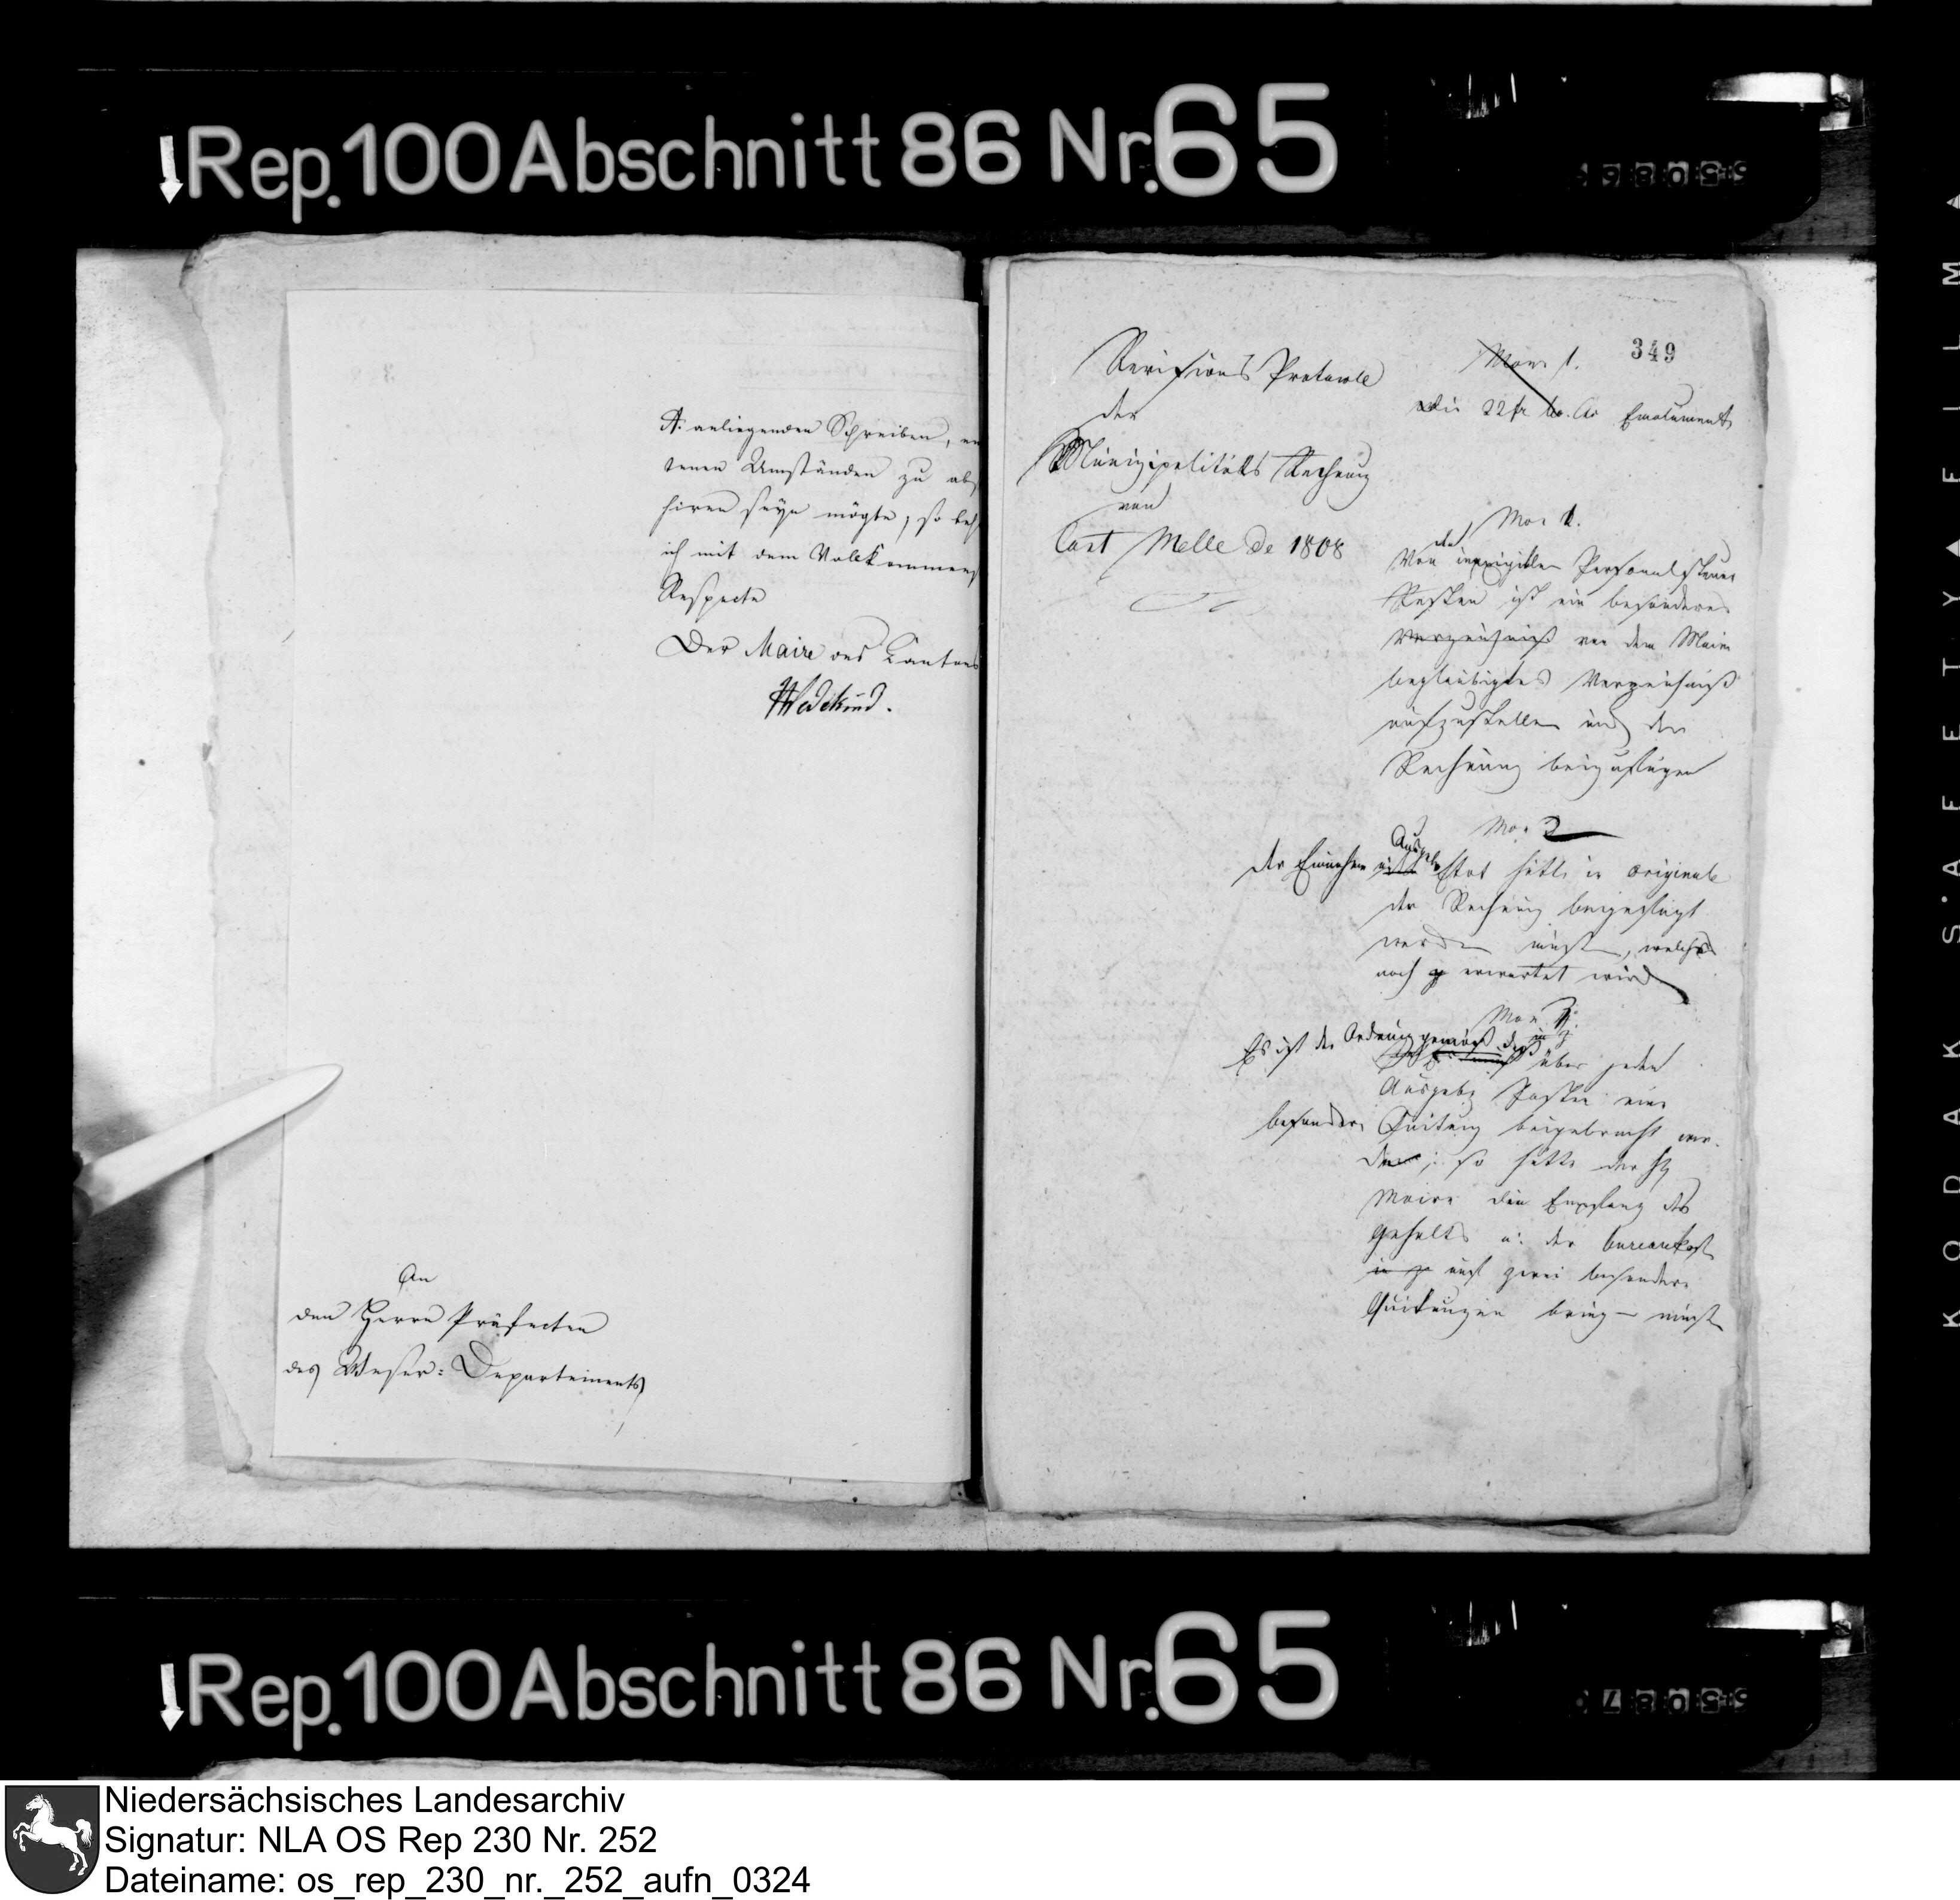 Rep. 100 Abschnitt 86 Nr. 65
A. anliegenden Schreiben,
tenen Umständen zu ab
hiren seyn mögte, so beh
ich mit dem Vollkommens
Respecte
Der Maire des Cantons
Wedekind.
An
den Herrn Präfecten
des Weser-Departements
349
Revisions Protocoll
der
Municipalitäts Rechnung
von
Cant Melle de 1808
Mon 1.
Die 22 fr Emolumente
Mon 1.
Von den inexigiblen Personalsteuer
Resten ist ein besonderes
Verzeichniß von dem Maire
beglaubigtes Verzeichniß
aufzustellen und der
Rechnung beizufügen
Mon 2
Der Einnahme Ausgabe Etat hätte in originale
der Rechnung beigefügt
werden müssen, welches
noch erwartet wird
Mon 3.
Es ist der Ordnung gemäß daß über jeden
Ausgabe Posten eine
besondere Quitung beigebracht wer-
den; so hätte der H
Maire den Empfang des
Gehalts u. der bureaukost
auf zwei besondere
Quitungen bring müss
Rep. 100 Abschnitt 86 Nr. 65
KODAK SAFETY FILM
Niedersächsisches Landesarchiv
Signatur: NLA OS Rep 230 Nr. 252
Dateiname: os_rep_230_nr._252_aufn_0324